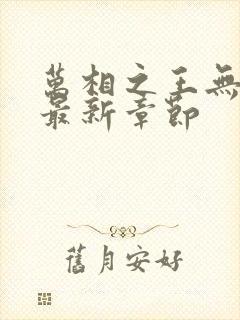 萬相之王無
最新章節
舊月安好